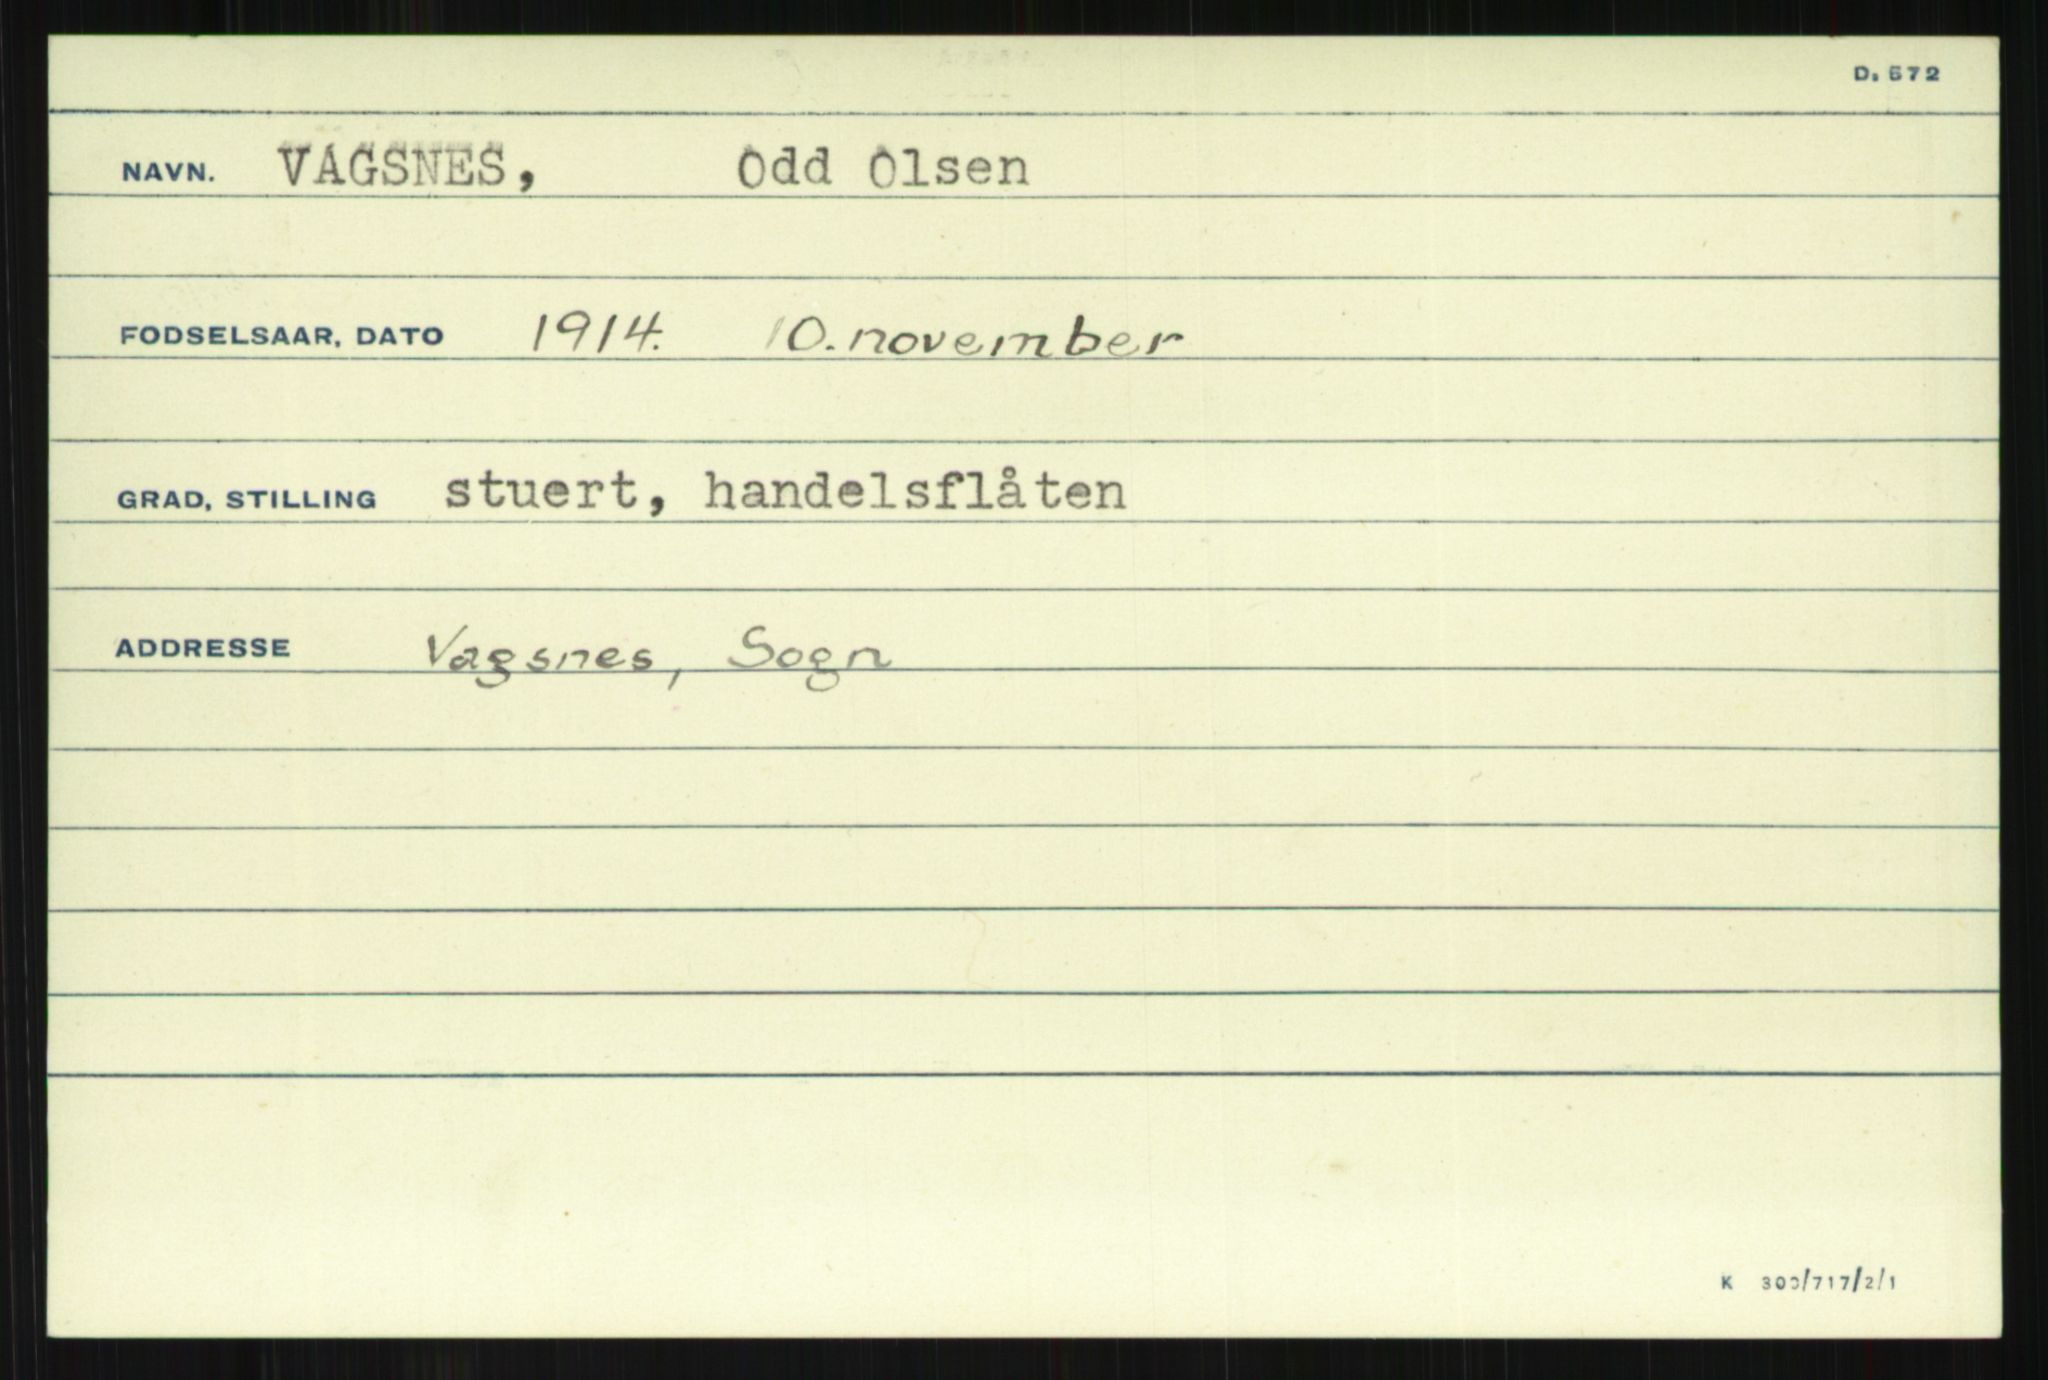 D. 572
NAVN. VAGSNES, Odd Olsen
FODSELSAAR, DATO 1914. 10. november
GRAD, STILLING stuert, handelsflåten
ADDRESSE Vagsnes, Sogn
K 300/717/2/1